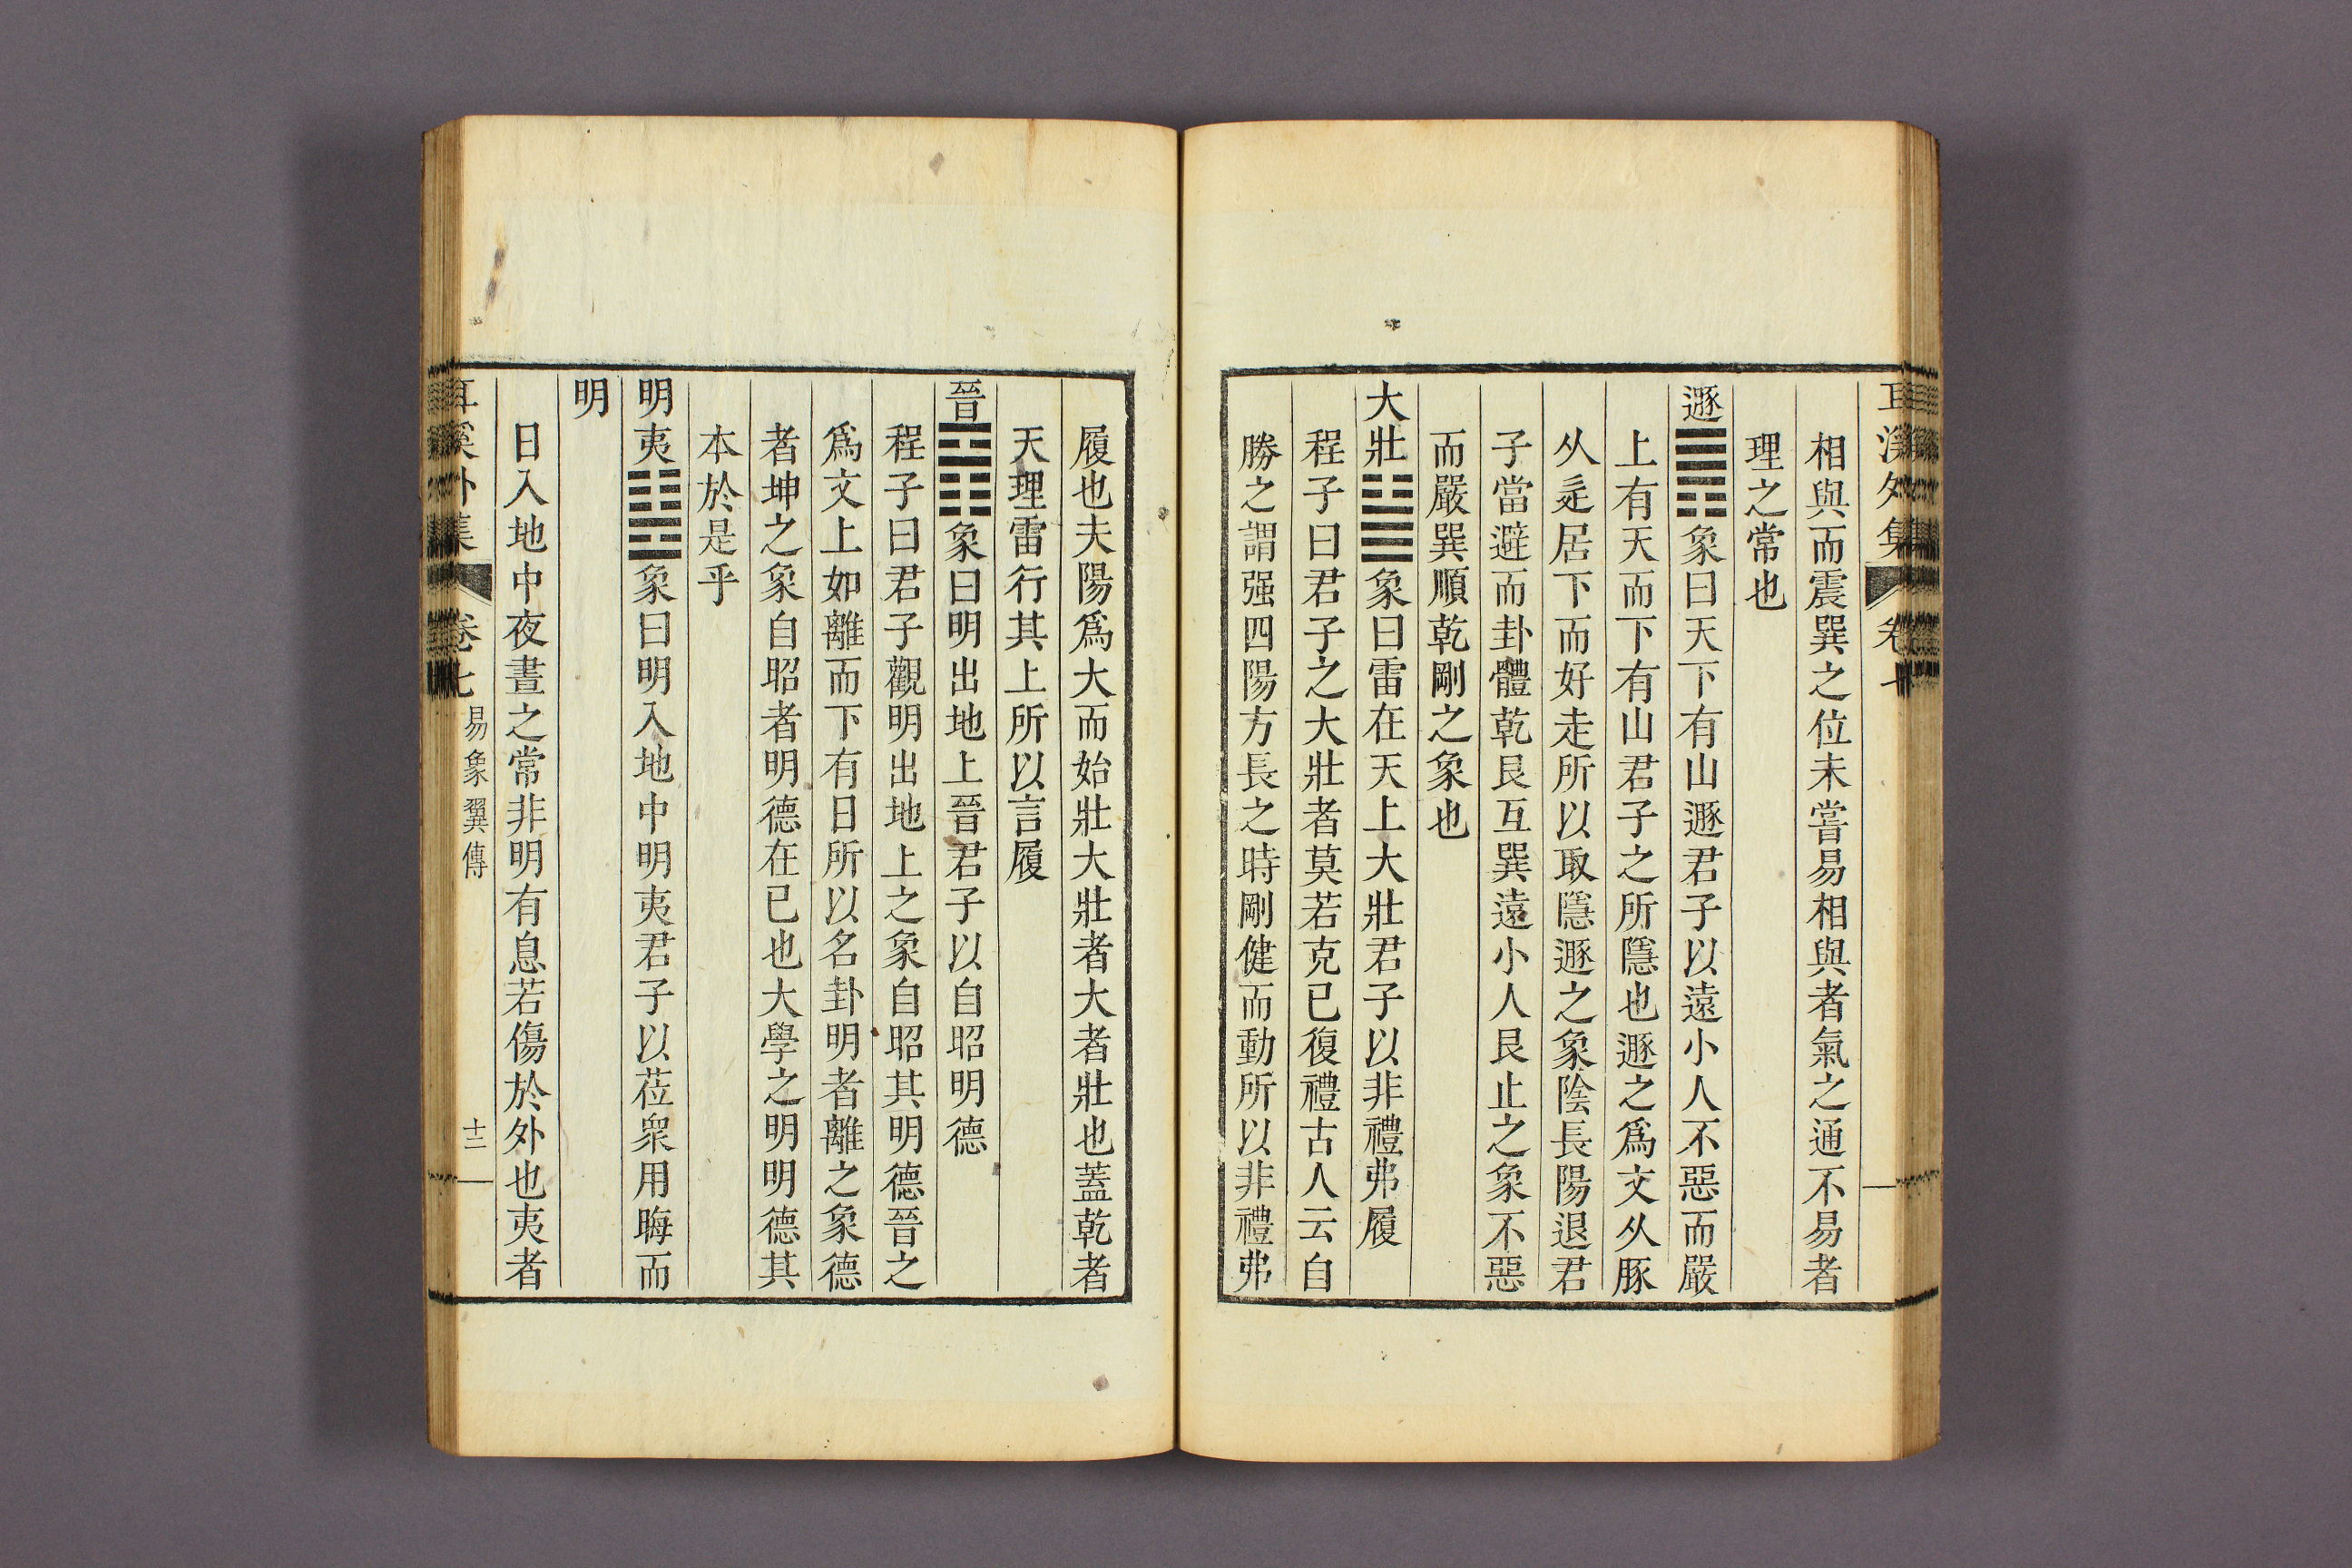 相與而震巽之位未嘗易相與者氣之通不易者
理之常也
遯䷠象曰天下有山遯君子以遠小人不惡而嚴
上有天而下有山君子之所隱也遯之爲文从豚
从辵居下而好走所以取隱遯之象陰長陽退君
子當避而卦體乾艮互巽遠小人艮止之象不惡
而嚴巽順乾剛之象也
大壯䷡象曰雷在天上大壯君子以非禮弗履
程子曰君子之大壯者莫若克已復禮古人云自
勝之謂强四陽方長之時剛健而動所以非禮弗
履也夫陽爲大而始壯大壯者大者壯也蓋乾者
天理雷行其上所以言履
晉䷢象曰明出地上晉君子以自昭明德
程子曰君子觀明出地上之象自昭其明德晉之
爲文上如離而下有日所以名卦明者離之象德
者坤之象自昭者明德在已也大學之明明德其
本於是乎
明夷䷣象曰明入地中明夷君子以莅衆用晦而
明
日入地中夜晝之常非明有息若傷於外也夷者
耳溪外集 卷七 易象翼傳 十二